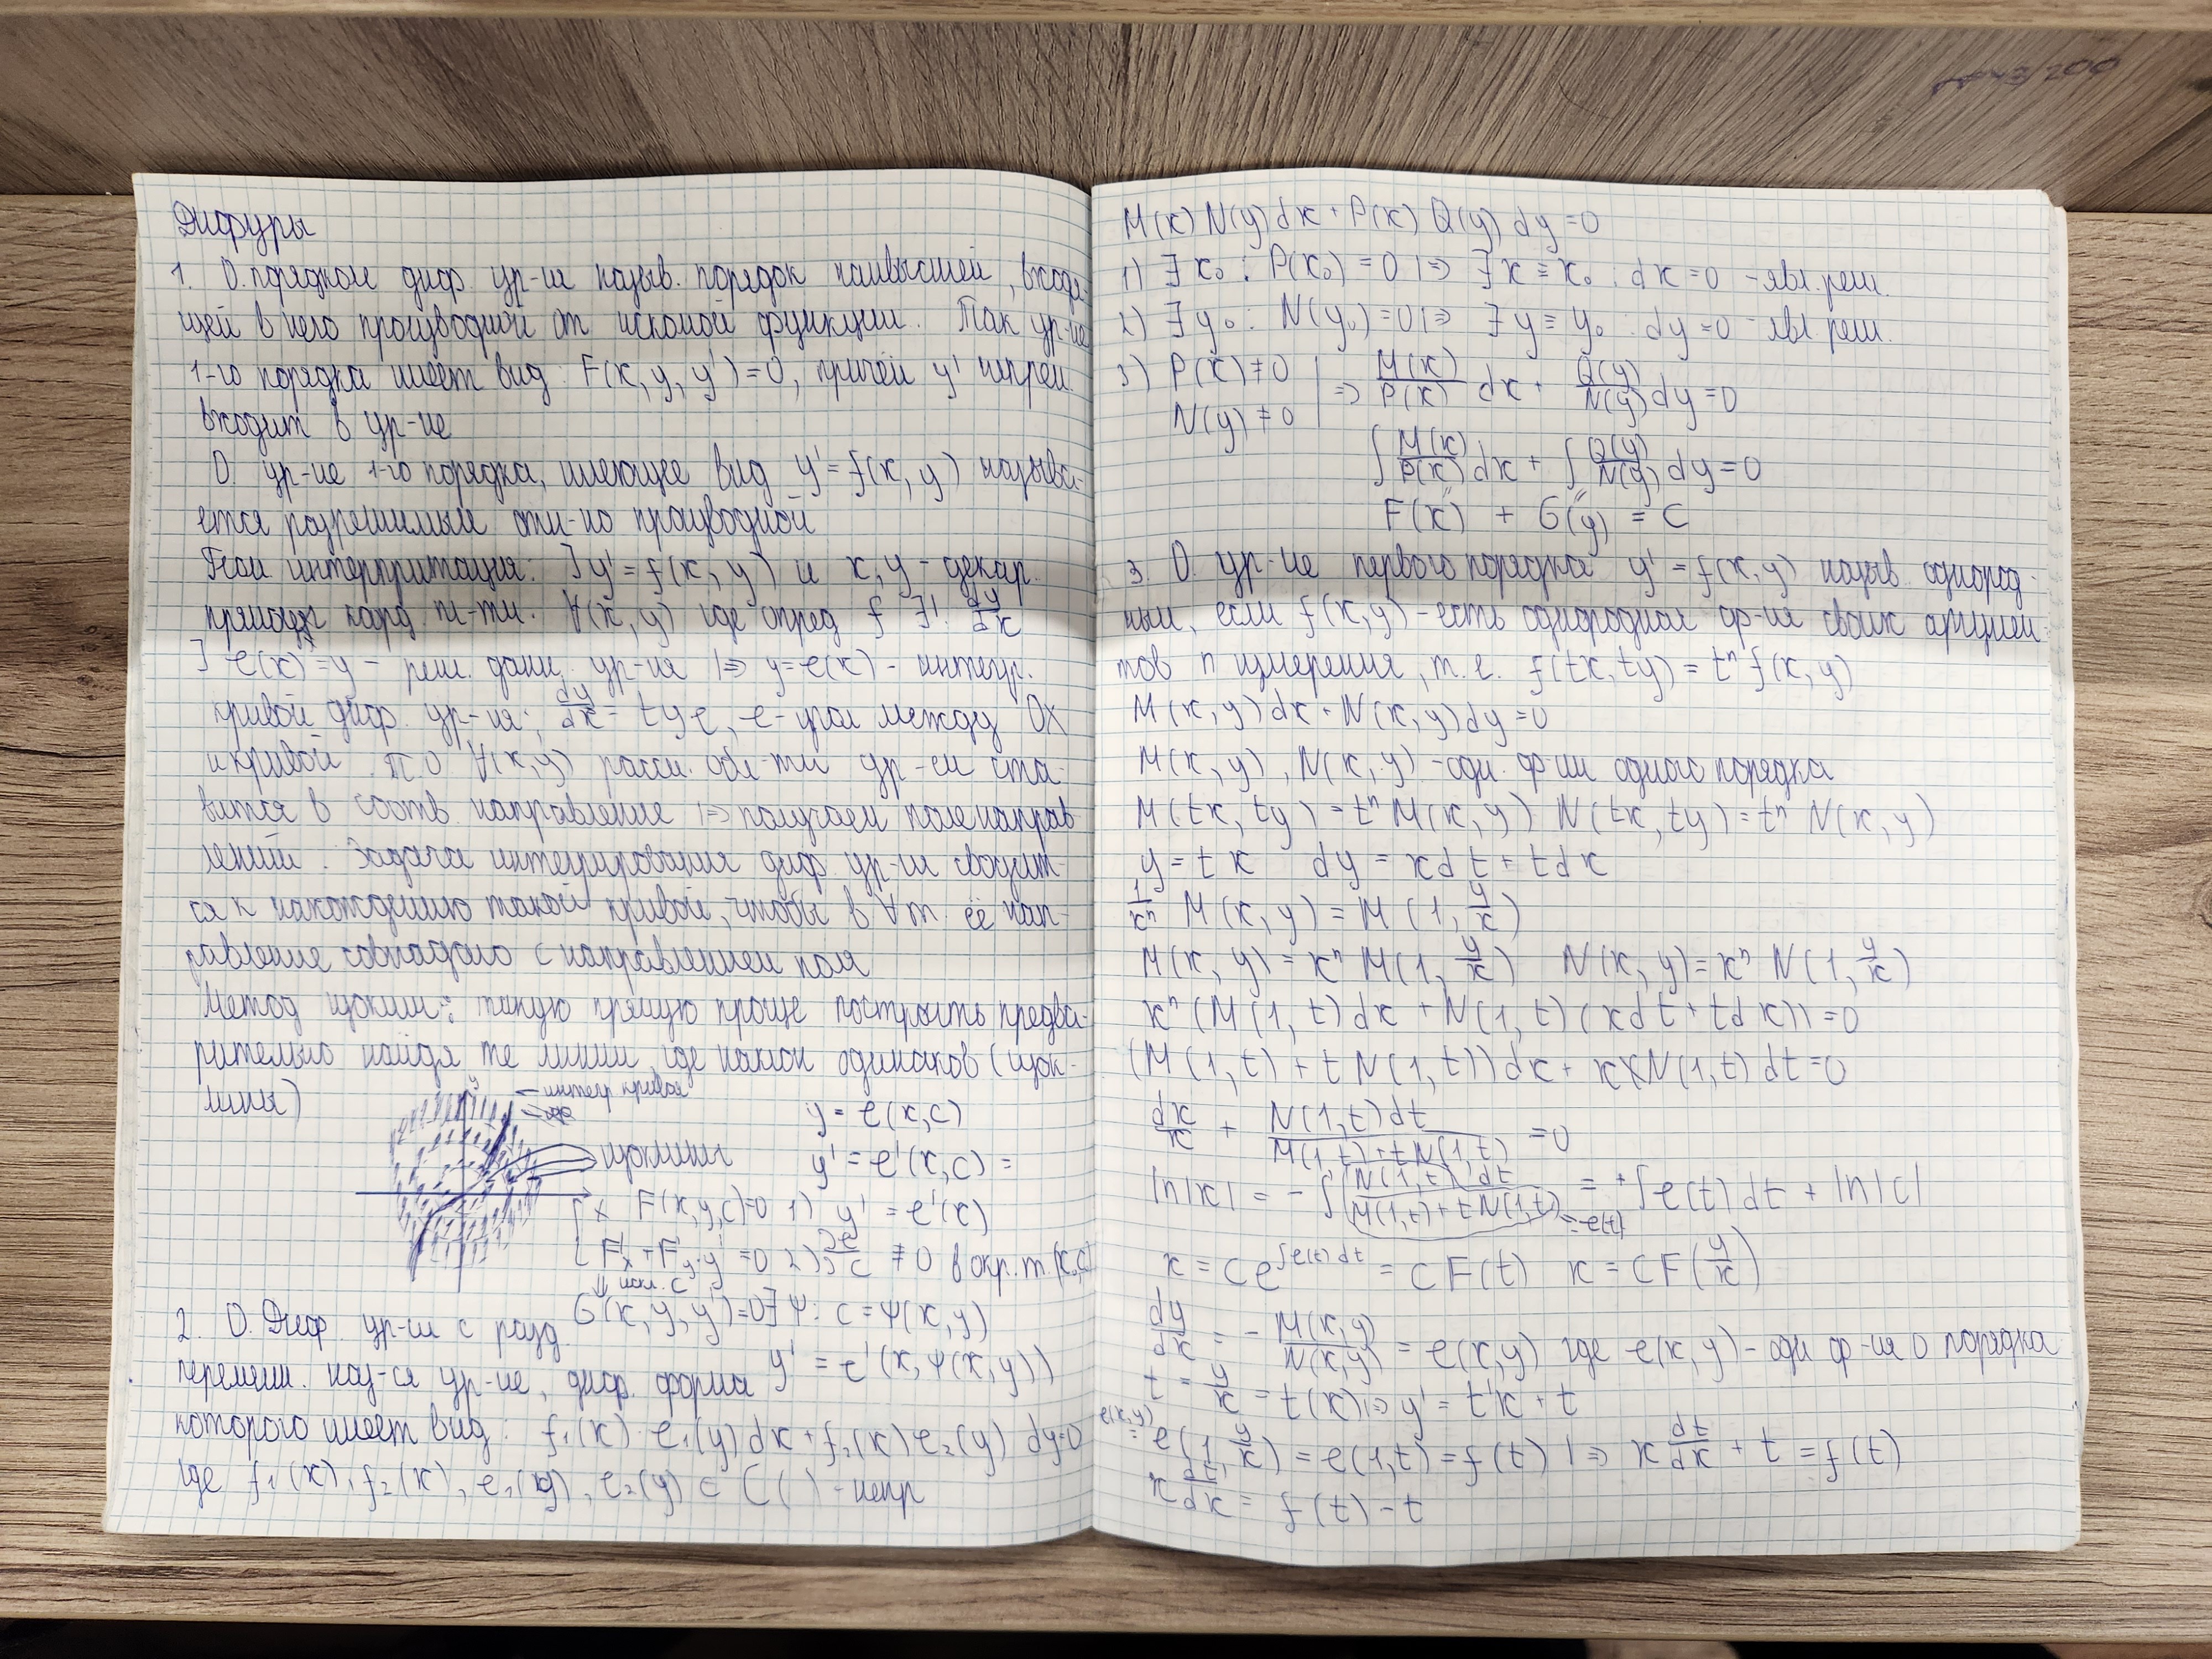 Дифуры
1. О. порядком диф. ур-ия назыв. порядок наивысшей, входя-
щей в него производной от искомой функции. Так ур-ие
1-го порядка имеет вид: F(x, y, y') = 0, причём y' непрем.
входит в ур-ие
О. ур-ие 1-го порядка, имеющее вид y' = f(x, y) называ-
ется разрешимым отн-но производной
Геом. интерпритация: ] y' = f(x, y) и x, y - декар.
прямоуг. коорд. пл-ти. ∀(x, y) где опред f ∃! dy/dx
] φ(x) = y - реш. данн. ур-ия |⇒ y = φ(x) - интегр.
кривой диф. ур-ия; dy/dx = tg φ, φ - угол между OX
и кривой π.о ∀(x, y) рассм. обл-ти ур-ем ста-
вится в соотв. направление |⇒ получаем поле направ
лений. Задача интегрирования диф. ур-ия сводит-
ся к нахождению такой кривой, чтобы в ∀ т. её нап-
равление совпадало с направлением поля
Метод изоклин: такую прямую проще построить предва-
рительно найдя те линии, где наклон одинаков (изок-
лины)
y
- интегр кривая
y = φ(x, c)
изоклина
y' = φ'(x, c) =
x F(x, y, c) = 0 1) y' = φ'(x)
F'x + F'y · y' = 0 2) ∂φ/∂c ≠ 0 в окр. т. (x, c)
⇓ искл. c
G(x, y, y') = 0 ∃ψ: c = ψ(x, y)
2. О. Диф. ур-ия с разд.
y' = φ'(x, ψ(x, y))
перемен. наз-ся ур-ие, диф. форма
которого имеет вид: f₁(x) · φ₁(y) dx + f₂(x) φ₂(y) dy = 0
где f₁(x), f₂(x), φ₁(y), φ₂(y) ⊂ C( ) - непр
M(x) N(y) dx + P(x) Q(y) dy = 0
1) ∃ x₀ : P(x₀) = 0 |⇒ ∃ x ≡ x₀ : dx = 0 - явл. реш.
2) ∃ y₀ : N(y₀) = 0 |⇒ ∃ y ≡ y₀ : dy = 0 - явл. реш.
3) P(x) ≠ 0 | ⇒ M(x)/P(x) dx + Q(y)/N(y) dy = 0
N(y) ≠ 0
∫ M(x)/P(x) dx + ∫ Q(y)/N(y) dy = 0
F(x) + G(y) = C
3. О. ур-ие первого порядка y' = f(x, y) назыв. однород-
ным, если f(x, y) - есть однородная ф-ия своих аргумен-
тов n измерения, т. е. f(tx, ty) = tⁿ f(x, y)
M(x, y) dx + N(x, y) dy = 0
M(x, y), N(x, y) - одн. ф-ии одного порядка
M(tx, ty) = tⁿ M(x, y) N(tx, ty) = tⁿ N(x, y)
y = tx dy = xdt + tdx
1/xⁿ M(x, y) = M(1, y/x)
M(x, y) = xⁿ M(1, y/x) N(x, y) = xⁿ N(1, y/x)
xⁿ (M(1, t) dx + N(1, t) (xdt + tdx)) = 0
(M(1, t) + t N(1, t)) dx + x N(1, t) dt = 0
dx/x + N(1, t) dt / M(1, t) + t N(1, t) = 0
ln|x| = - ∫ N(1, t) dt / M(1, t) + t N(1, t) = + ∫ φ(t) dt + ln|c|
= φ(t)
x = C e^∫φ(t) dt = C F(t) x = C F(y/x)
dy/dx = - M(x, y)/N(x, y) = φ(x, y) где φ(x, y) - одн ф-ия 0 порядка
t = y/x = t(x) |⇒ y' = t'x + t
φ(x, y) = φ(1, y/x) = φ(1, t) = f(t) |⇒ x dt/dx + t = f(t)
x dt/dx = f(t) - t